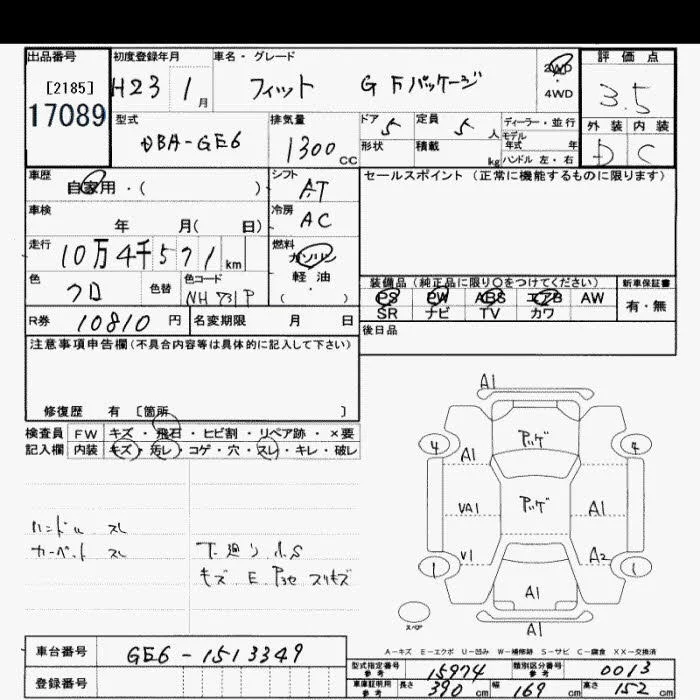 出品番号 初度登録年月 車名・グレード 2WD 評価点
[2185] H23 1月 フィット G Fパッケージ 4WD 3.5
17089 型式 DBA-GE6 排気量 1300cc ドア 5 定員 5人 ディーラー・並行 外装 内装
形状 積載 kg モデル年式 年 ハンドル 左・右 D C
車歴 自家用・( ) シフト AT セールスポイント(正常に機能するものに限ります)
車検 年 月( 日) 冷房 AC
走行 10万4千571km 燃料 ガソリン
軽油
( )
色 クロ 色替 色コード NH731P 装備品(純正品に限り〇をつけてください) 新車保証書
PS PW ABS エアB AW 有・無
SR ナビ TV カワ
R券 10810円 名変期限 月 日 後日品
注意事項申告欄(不具合内容等は具体的に記入して下さい)
修復歴 有 [箇所 ]
検査員 FW キズ・飛石・ヒビ割・リペア跡・×要
記入欄 内装 キズ・汚レ・コゲ・穴・スレ・キレ・破レ
A1
アッゲ
4 4
A1
VA1 アッゲ A1
V1 A2
1 1
A1
スペア
A1
ハンドル スレ
カーペット スレ
下廻り小S
キズ E スリキズ
A-キズ E-エクボ U-凹み W-補修跡 S-サビ C-腐食 XX-交換済
車台番号 GE6-1513349
登録番号
型式指定番号 参考 15974 類別区分番号 参考 0013
車庫証明用 参考 長さ 390cm 幅 169cm 高さ 152cm